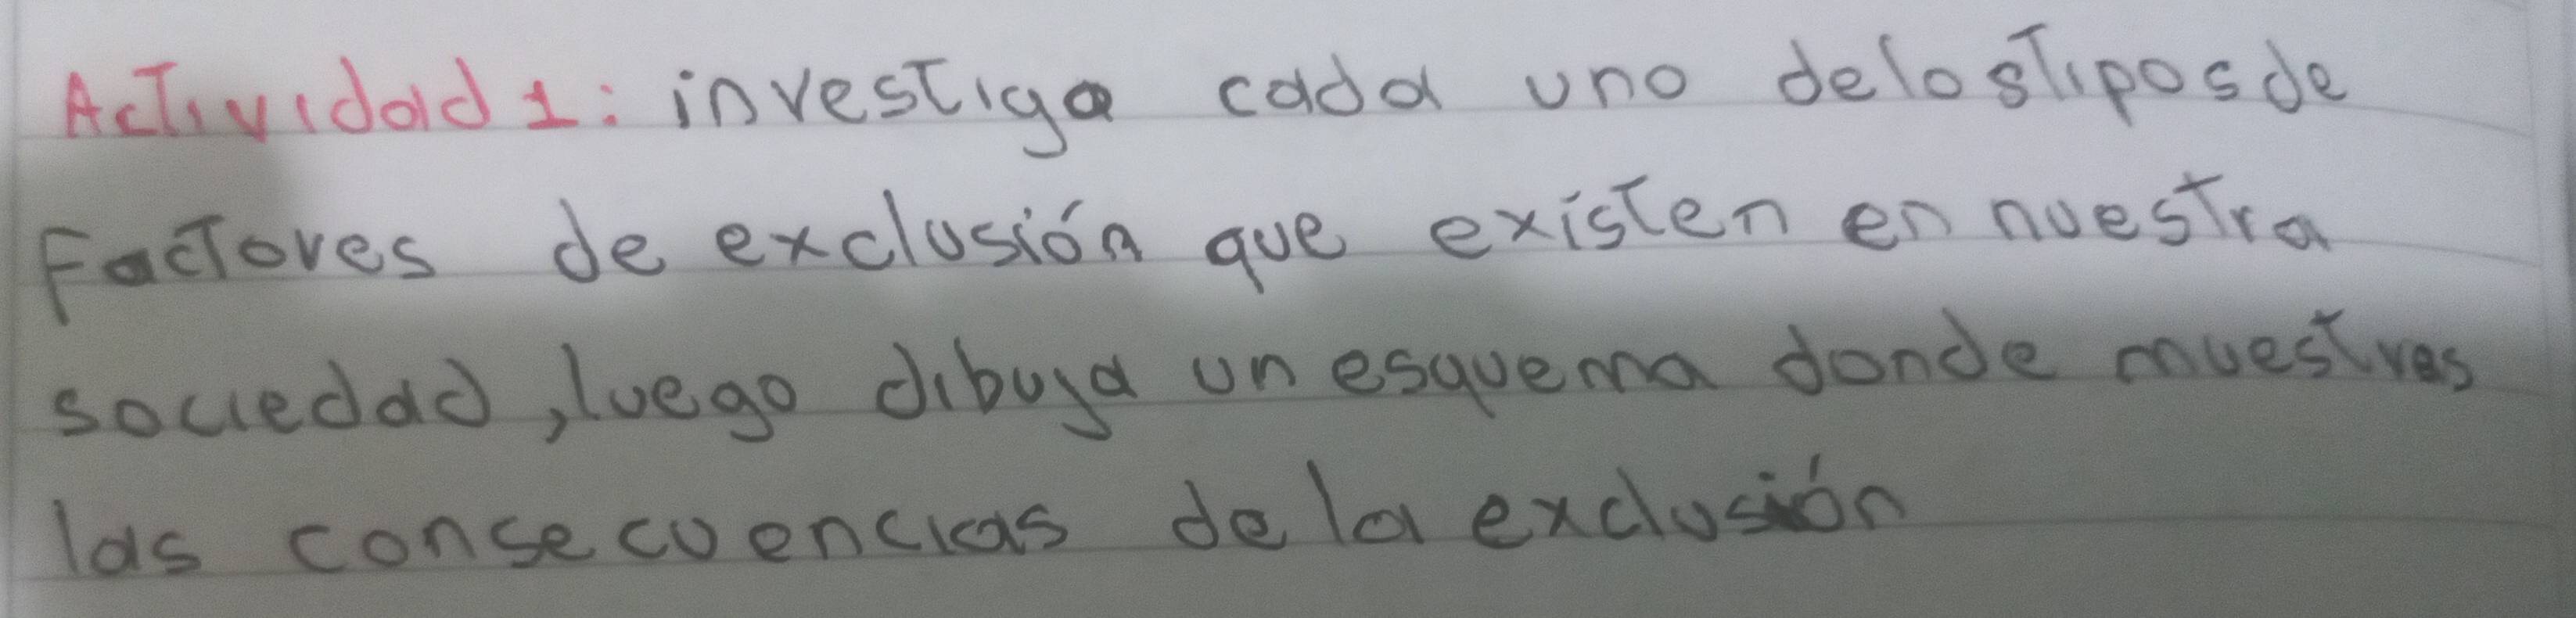 Actividad 1: investiga cada uno de los tipos de
Factores de exclusión que existen en nuestra
sociedad, luego dibuja un esquema donde muestres
las consecuencias de la exclusión